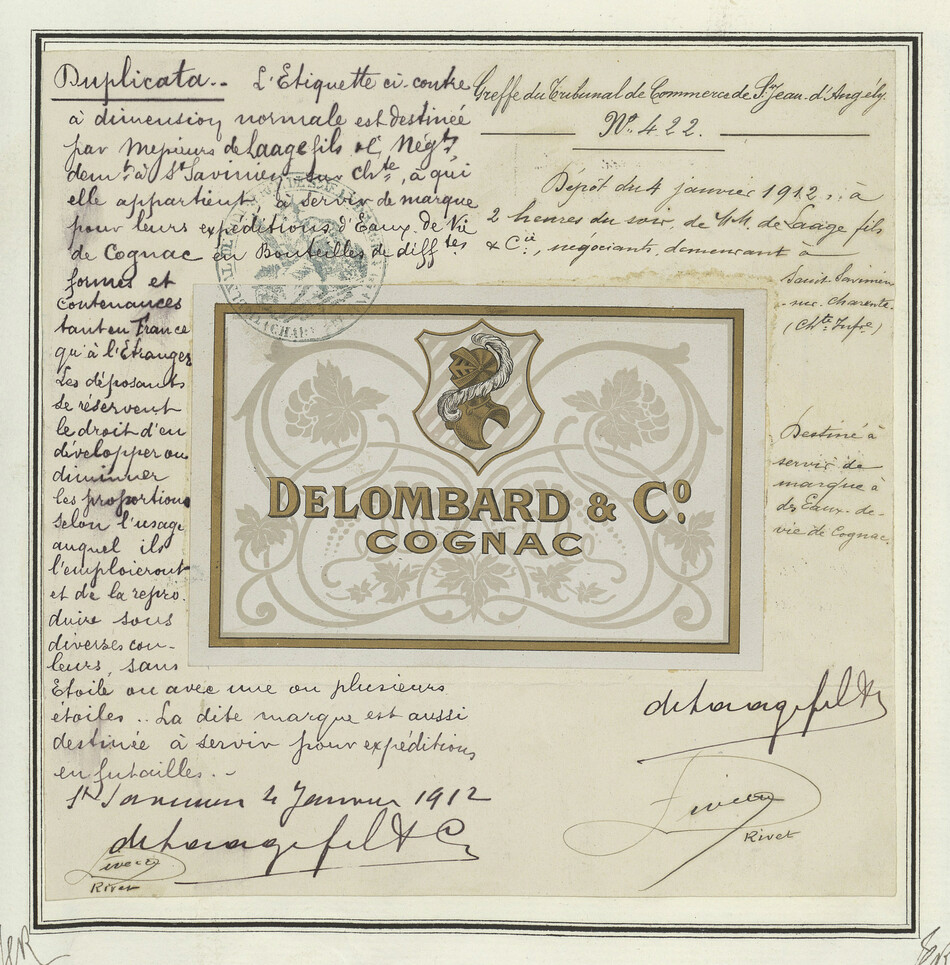 Duplicata.. L'Etiquette ci-contre
à dimension normale est destinée
par Messieurs de Laage fils & Cie Négts
demts à St Savinien sur Chte, à qui
elle appartient, à servir de marque
pour leurs expéditions d'Eaux-de-Vie
de Cognac en Bouteilles de difftes
formes et
contenances
tant en France
qu'à l'Etranger
Les déposants
se réservent
le droit d'en
développer ou
diminuer
les proportions
selon l'usage
auquel ils
l'emploieront
et de la repro-
duire sous
diverses cou-
leurs, sans
Etoile ou avec une ou plusieurs
étoiles .. La dite marque est aussi
destinée à servir pour expéditions
en futailles. -
St Savinien 4 Janvier 1912
de Laage fils & Co
Rivet
Greffe du Tribunal de Commerce de St Jean-d'Angély.
No. 422.
Dépôt du 4 janvier 1912, à
2 heures du soir, de MM. de Laage fils
& Cie, négociants, demeurant à
Saint-Savinien
-sur-Charente
(Chte Infre)
Destiné à
servir de
marque à
des Eaux-de-
vie de Cognac.
DELOMBARD & Co.
COGNAC
de Laage fils & Co
Rivet